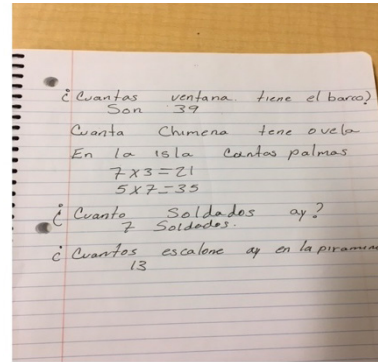 ¿Cuantas ventana tiene el barco?
Son 39
Cuanta Chimena tene ovela
En la isla Cantas palmas
7 x 3 = 21
5 x 7 = 35
¿Cuanto Soldados ay?
7 Soldados.
¿Cuantos escalone ay en la
13